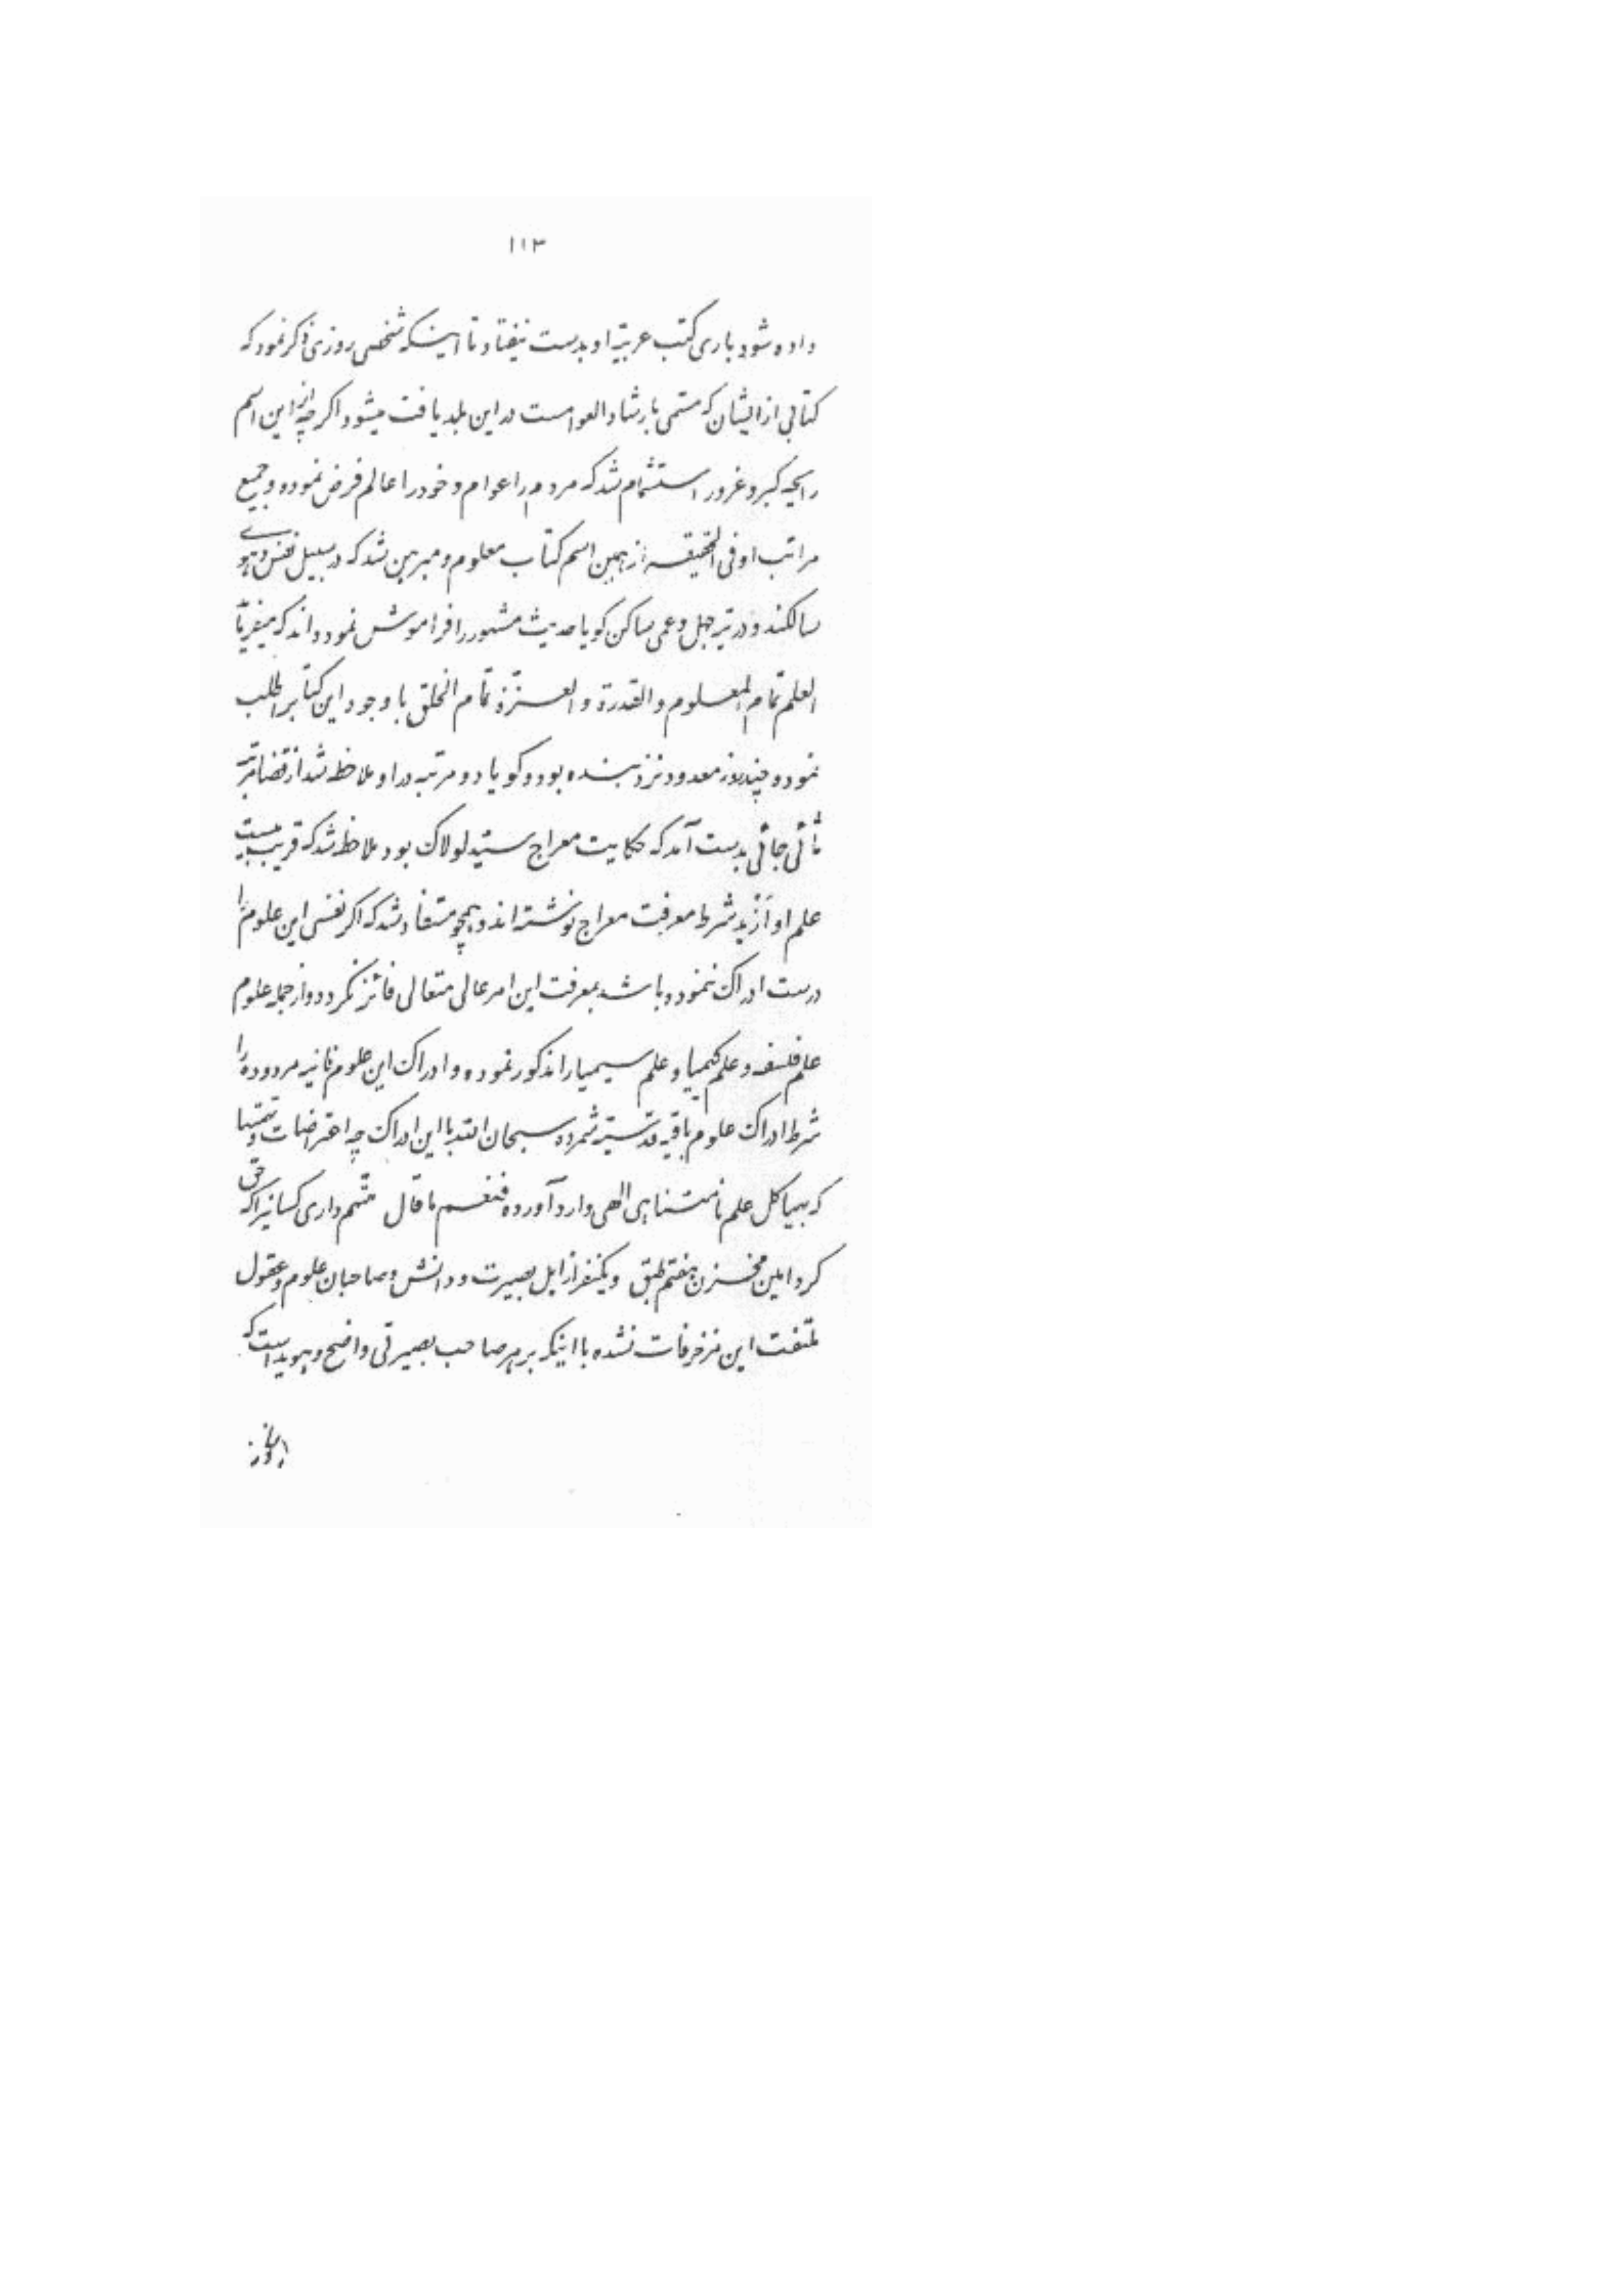 ١١٣
داده شود باری کتب عربیّه او بدست نیفتاد تا اینکه شخصی روزی ذکر نمود که
کتابی از ایشان که مسمّی بارشاد العوامست در این بلد یافت میشود اگر چه از این اسم
رایحه کبر و غرور استشمام شد که مردم را عوام و خود را عالم فرض نموده و جمیع
مراتب او فی الحقیقه از همین اسم کتاب معلوم و مبرهن شد که در سبیل نفس و هوی
سالکند و در تیه جهل و عمی ساکن گویا حدیث مشهور را فراموش نموده‌اند که میفرماید
العلم تمام المعلوم و القدرة و العزّة تمام الخلق با وجود این کتابرا طلب
نموده چند روز معدود نزد بنده بود و گویا دو مرتبه در او ملاحظه شد از قضا مرتبه
ثانی جائی بدست آمد که حکایت معراج سیّد لولاک بود ملاحظه شد که قریب بیست
علم او ازید شرط معرفت معراج نوشته‌اند و همچو مستفاد شد که اگر نفسی این علوم را
درست ادراک ننموده باشد بمعرفت این امر عالی متعالی فائز نگردد و از جمله علوم
علم فلسفه و علم کیمیا و علم سیمیا را مذکور نموده و ادراک این علوم فانیه مردوده را
شرط ادراک علوم باقیه قدسیّه شمرده سبحان الله با این ادراک چه اعتراضات و تهمتها
که بهیاکل علم نامتناهی الهی وارد آورده فنعم ما قال متّهم داری کسانیرا که حقّ
کرد امین مخزن هفتم طبق و یکنفر از اهل بصیرت و دانش و صاحبان علوم و عقول
ملتفت این مزخرفات نشده با اینکه بر هر صاحب بصیرتی واضح و هویداست که